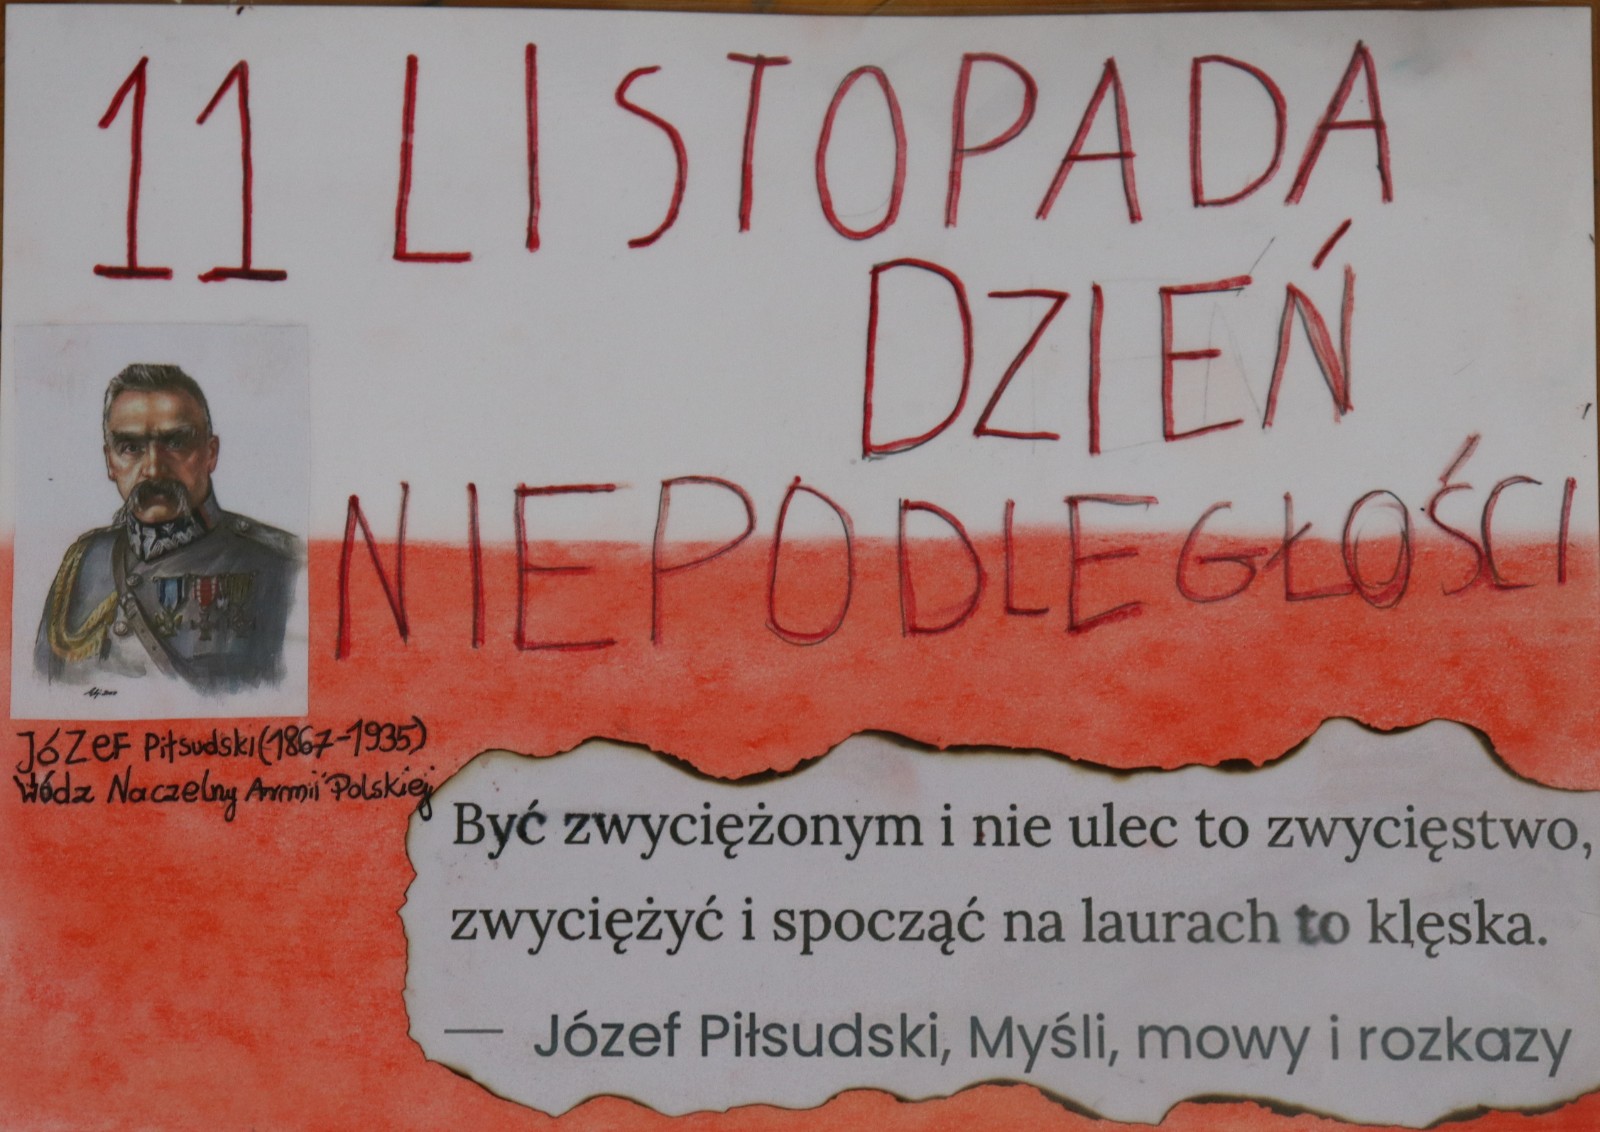 11 LISTOPADA
DZIEŃ
NIEPODLEGŁOŚCI
JÓZEF Piłsudski (1867-1935)
Wódz Naczelny Armii Polskiej
Być zwyciężonym i nie ulec to zwycięstwo,
zwyciężyć i spocząć na laurach to klęska.
— Józef Piłsudski, Myśli, mowy i rozkazy